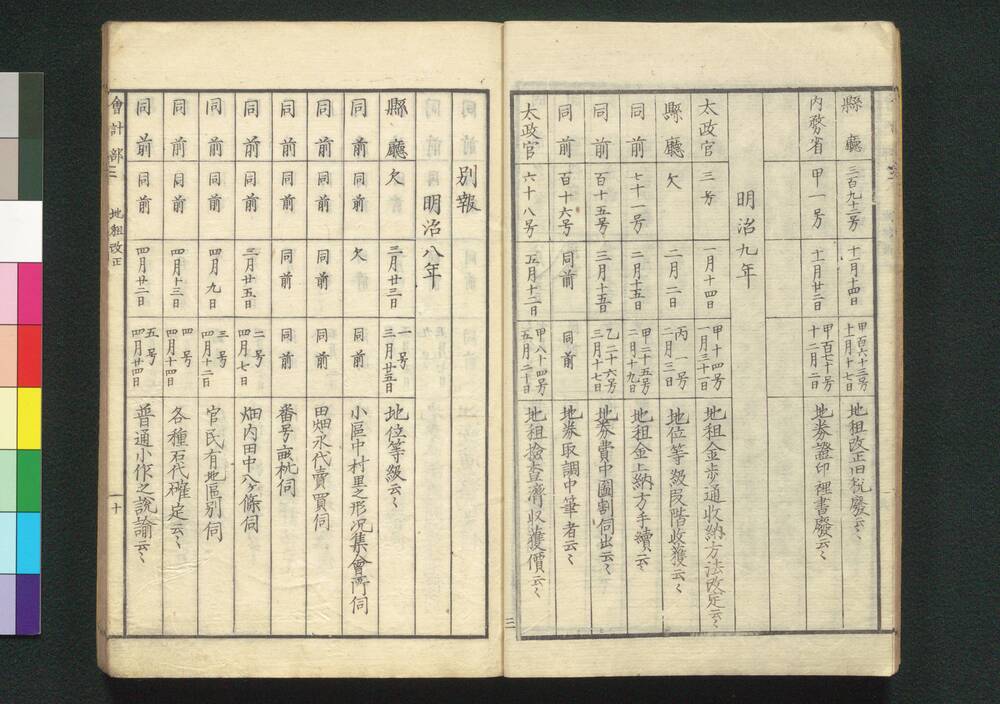 縣廳 三百九十三号 十一月十四日 甲百六十三号 十一月十七日 地租改正旧税廢云々
内務省 甲一号 十一月廿二日 甲百七十号 十二月二日 地券證印裡書廢云々
明治九年
太政官 三号 一月十四日 甲十四号 一月三十一日 地租金歩通收納方法改定云々
縣廳 欠 二月二日 丙一号 二月三日 地位等級段階收獲云々
同前 七十一号 二月十五日 甲二十五号 二月十九日 地租金上納方手續云々
同前 百十五号 三月十五日 乙二十六号 三月十七日 地券費中圖割伺出云々
同前 百十六号 同前 同前 地券取調中筆者云々
太政官 六十八号 五月十二日 甲八十四号 五月二十日 地租撿査濟收獲價云々
三
別報
明治八年
縣廳 欠 三月廿三日 一号 三月廿五日 地位等級云々
同前 同前 欠 同前 小區中村里之形况集會所伺
同前 同前 同前 同前 田畑永代賣買伺
同前 同前 同前 同前 番号畝杭伺
同前 同前 三月廿五日 二号 四月七日 畑内田中八ヶ條伺
同前 同前 四月九日 三号 四月十二日 官民有地區別伺
同前 同前 四月十三日 四号 四月十四日 各種石代確定云々
同前 同前 四月廿二日 五号 四月廿四日 普通小作之説諭云々
會計部三 地租改正 十